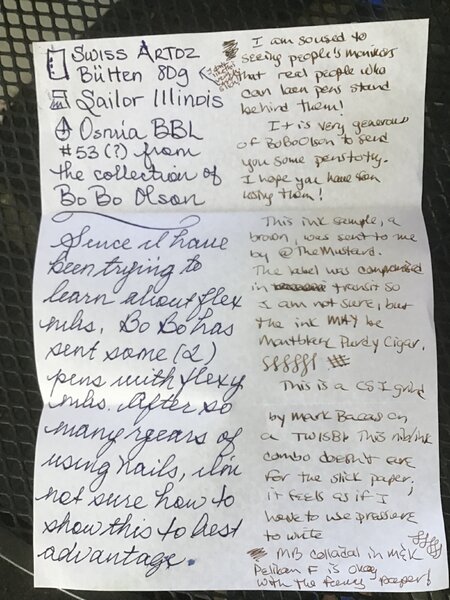 Swiss Artoz
Bütten 80g
Sailor Illinois
Osmia BBL
#53(?) from
the collection of
BoBo Olson
Since I have
been trying to
learn about flex
nibs, BoBo has
sent some (2)
pens with flexy
nibs. After so
many years of
using nails, I'm
not sure how to
show this to best
advantage.
I am so used to
seeing people's monikers
that real people who
can been pens stand
behind them!
It is very generous
of BoBoOlson to send
you some pens to try.
I hope you have fun
using them!
This ink sample, a
brown, was sent to me
by @TheMustard.
The label was compromised
in transit so
I am not sure, but
the ink MAY be
Montblanc Purdy Cigar.
This is a CSI grind
by Mark Bacas on
a TWISBI. This nib/ink
combo doesn't care
for the slick paper,
it feels as if I
have to use pressure
to write
MB collodal in
Pelikan F is okay
with the paper!